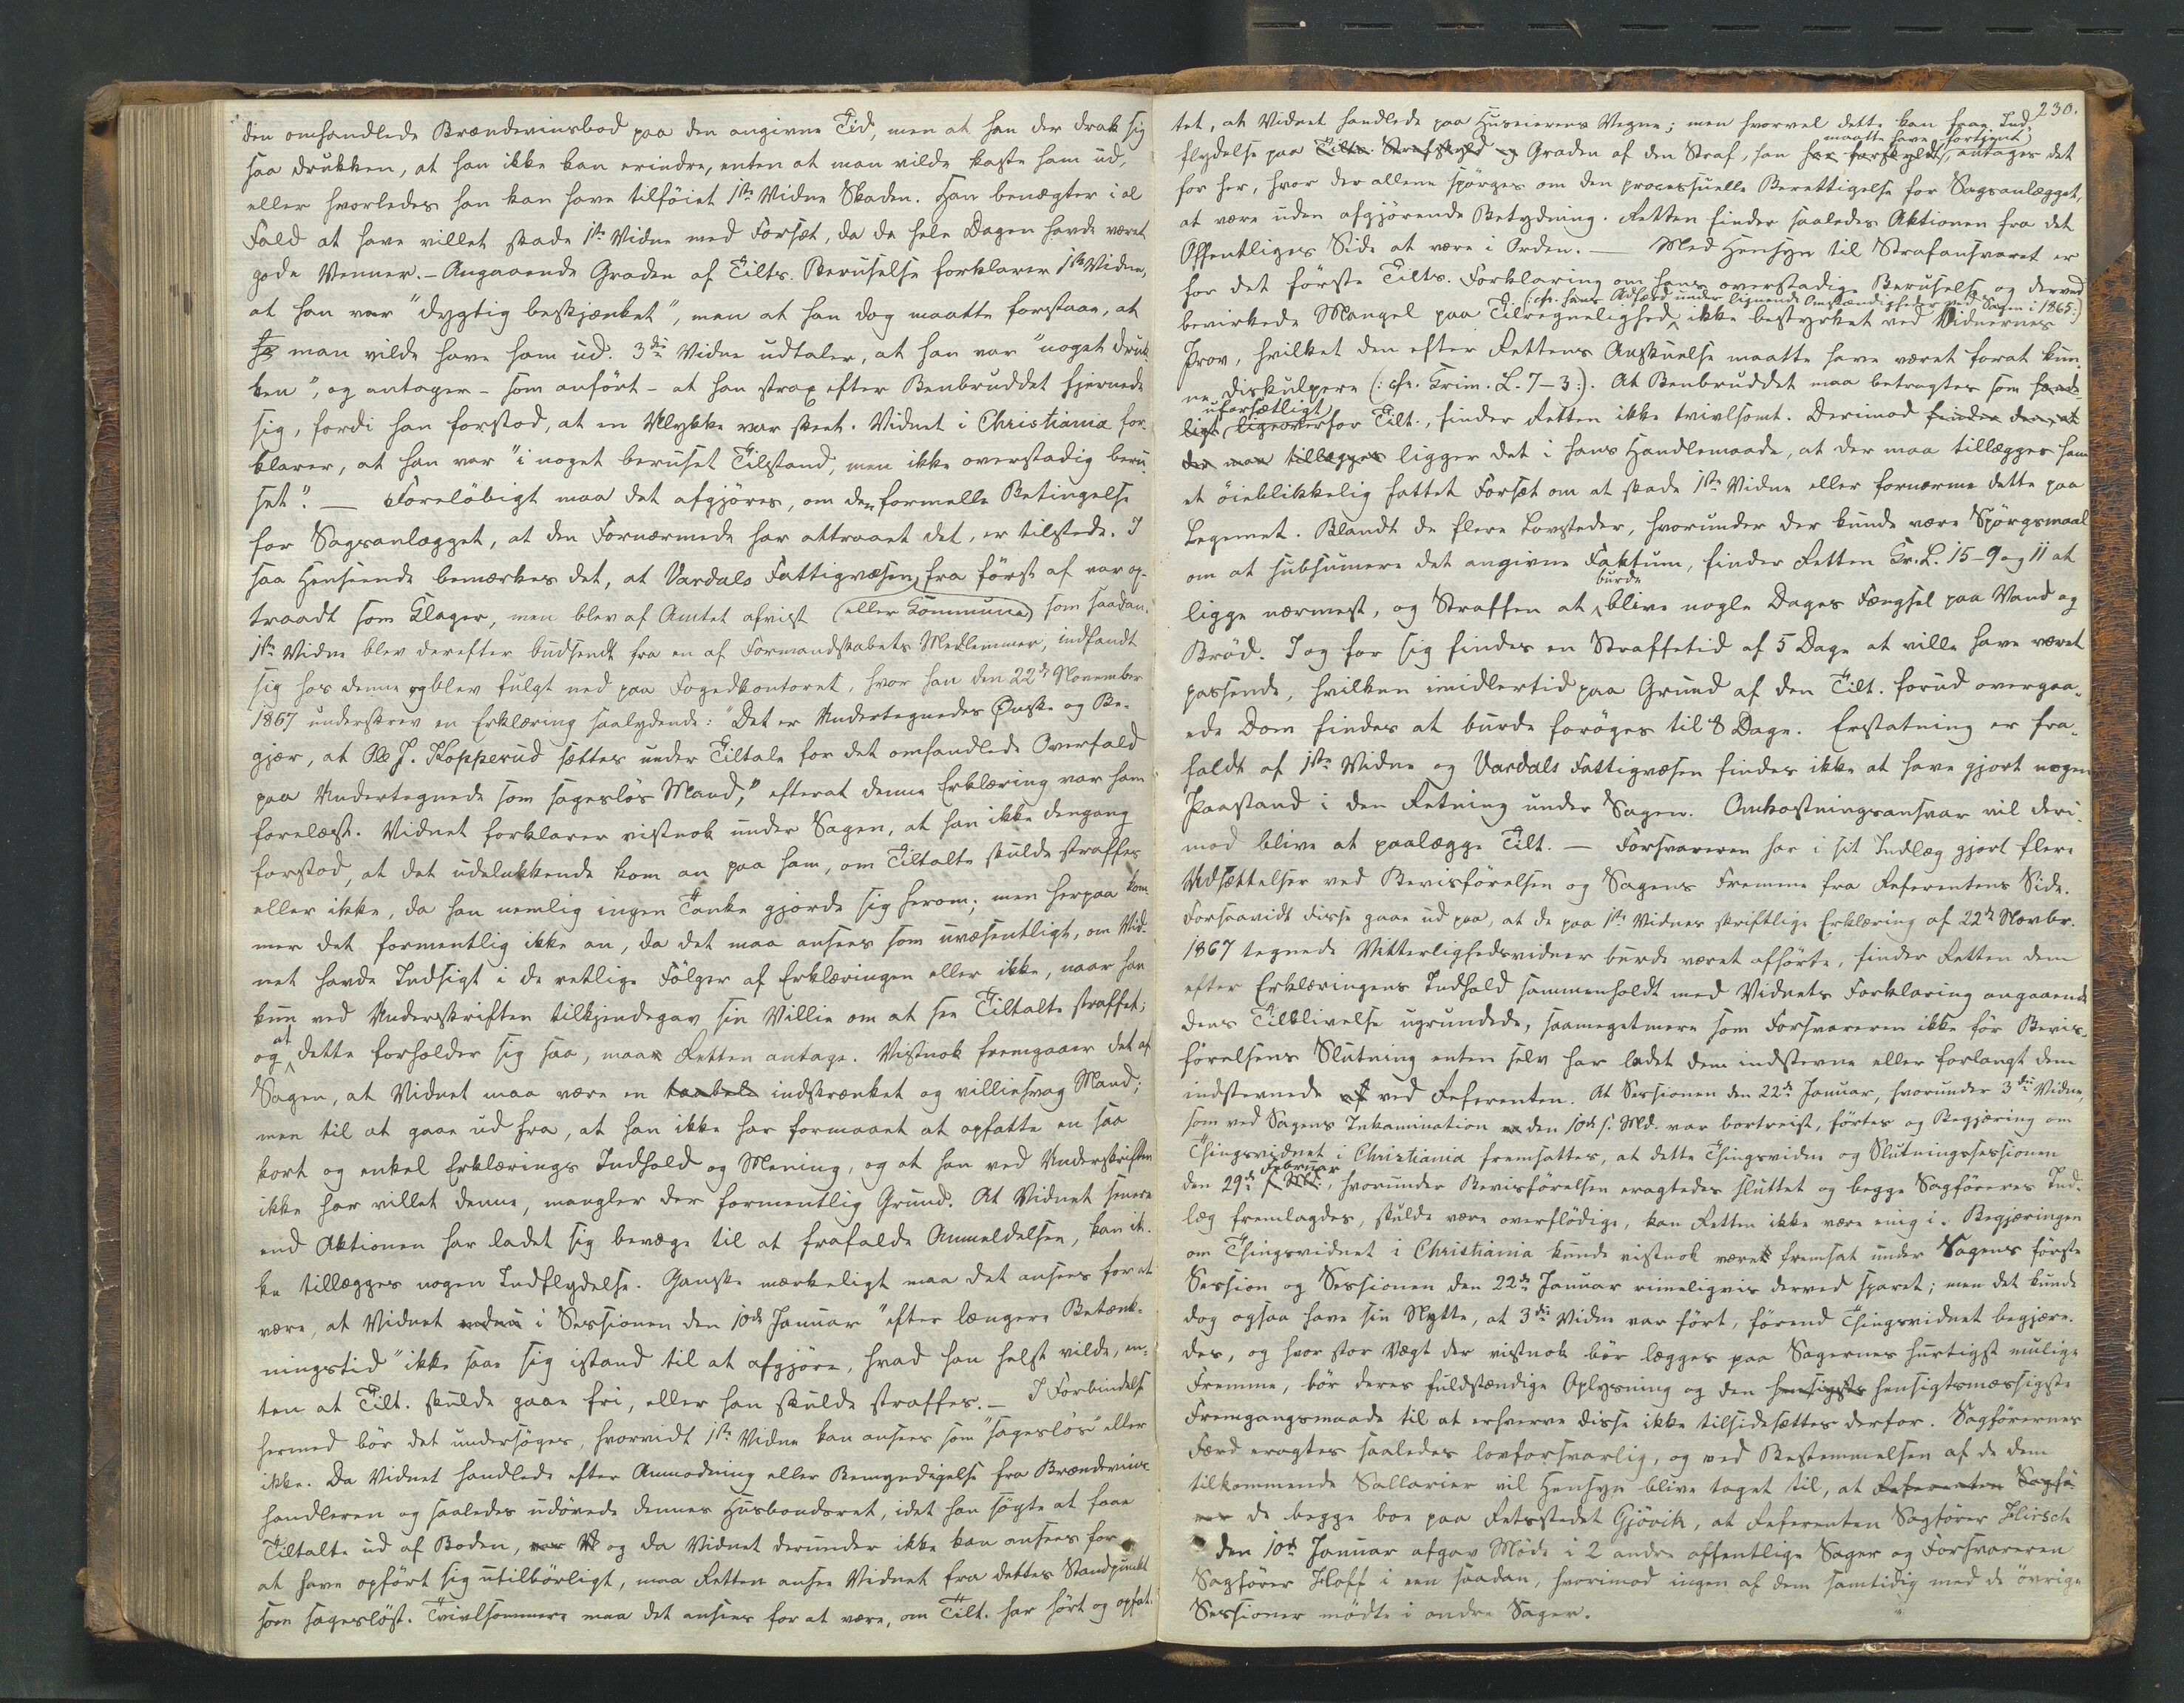 den omhandlede Brændevinsbod paa den angivne Tid, men at han der drak sig
saa drukken, at han ikke kan erindre, enten at man vilde kaste ham ud,
eller hvorledes han kan have tilföiet 1ste Vidne Skaden. Han benægter i al
Fald at have villet skade 1ste Vidne med Forsæt, da de hele Dagen havde været
gode Venner. – Angaaende Graden af Tilts. Beruselse forklarer 1ste Vidne,
at han var "dygtig beskjænket", men at han dog maatte forstaae, at
man vilde have ham ud. 3die Vidne udtaler, at han var "noget druk-
ken", og antager – som anfört – at han strax efter Benbruddet fjernede
sig, fordi han forstod, at en Ulykke var skeet. Vidnet i Christiania for-
klarer, at han var "i noget beruset Tilstand, men ikke overstadig beru-
set". — Foreløbigt maa det afgjöres, om den formelle Betingelse
for Sagsanlægget, at den Fornærmede har attraaet det, er tilstede. I
saa Henseende bemærkes det, at Vardals Fattigvæsen fra först af var op-
traadt som Klager, men blev af Amtet afvist (eller Kommune) som saadan.
1ste Vidne blev derefter budsendt fra en af Formandskabets Medlemmer, indfandt
sig hos denne og blev fulgt ned paa Fogedkontoret, hvor han den 22de November
1867 underskrev en Erklæring saalydende: "Det er Undertegnedes Ønske og Be-
gjær, at Ole J. Kopperud sættes under Tiltale for det omhandlede Overfald
paa Undertegnede som sageslös Mand," efterat denne Erklæring var ham
forelæst. Vidnet forklarer vistnok under Sagen, at han ikke dengang
forstod, at det udelukkende kom an paa ham, om Tiltalte skulde straffes
eller ikke, da han nemlig ingen Tanke gjorde sig herom; men herpaa kom-
mer det formentlig ikke an, da det maa ansees som uvæsentligt, om Vid-
net havde Indsigt i de retlige Fölger af Erklæringen eller ikke, naar han
kun ved Underskriften tilkjendegav sin Villie om at see Tiltalte straffet;
og at dette forholder sig saa, maa Retten antage. Vistnok fremgaaer det af
Sagen, at Vidnet maa være en taabele indskrænket og villiesvag Mand;
men til at gaae ud fra, at han ikke har formaaet at opfatte en saa
kort og enkel Erklærings Indhold og Mening, og at han ved Underskriften
ikke har villet denne, mangler der formentlig Grund. At Vidnet senere
end Aktionen har ladet sig bevæge til at frafalde Anmeldelsen, kan ik-
ke tillægges nogen Indflydelse. Ganske mærkeligt maa det ansees for at
være, at Vidnet endnu i Sessionen den 10de Januar "efter længere Betænk-
ningstid" ikke saae sig istand til at afgjöre, hvad han helst vilde, en-
ten at Tilt. skulde gaae fri, eller han skulde straffes. – I Forbindelse
hermed bör det undersöges, hvorvidt 1ste Vidne kan ansees som "sageslös" eller
ikke. Da Vidnet handlede efter Anmodning eller Bemyndigelse fra Brændevins-
handleren og saaledes udövede dennes Husbondsret, idet han sögte at faae
Tiltalte ud af Boden, og da Vidnet derunder ikke kan ansees for
at have opfört sig utilbörligt, maa Retten ansee Vidnet fra dettes Standpunkt
som sageslöst. Tvivlsommere maa det ansees for at være, om Tilt. har hört og opfat-
230.
tet, at Vidnet handlede paa Huseierens Vegne; men hvorvel dette kan have Ind-
maatte have fortjent,
flydelse paa Tilts. Strafskyld og Graden af den Straf, han har forskyldt, antages det
for her, hvor der allene spörges om den processuelle Berettigelse for Sagsanlægget,
at være uden afgjörende Betydning. Retten finder saaledes Aktionen fra det
Offentliges Side at være i Orden. — Med Hensyn til Strafansvaret er
for det förste Tilts. Forklaring om hans overstadige Beruselse og derved
(: cfr. hans Adfærd under lignende Omstændigheder ved Sagen i 1865:)
bevirkede Mangel paa Tilregnelighed ikke bestyrket ved Vidnernes
Prov, hvilket den efter Rettens Anskuelse maatte have været forat kun-
ne diskulpere (: cfr. Krim. L. 7–3:). At Benbruddet maa betragtes som hænde-
uforsætligt
ligt, ligeoverfor Tilt., finder Retten ikke tvivlsomt. Derimod finder den, at
der maa tillægges ligger det i hans Handlemaade, at der maa tillægges ham
et öieblikkelig fattet Forsæt om at skade 1ste Vidne eller fornærme dette paa
Legemet. Blandt de flere Lovsteder, hvorunder der kunde være Spörgsmaal
om at subsumere det angivne Faktum, finder Retten Kr. L. 15–9 og 11 at
burde
ligge nærmest, og Straffen at blive nogle Dages Fængsel paa Vand og
Bröd. I og for sig findes en Straffetid af 5 Dage at ville have været
passende, hvilken imidlertid paa Grund af den Tilt. forud overgaa-
ede Dom findes at burde foröges til 8 Dage. Erstatning er fra-
faldt af 1ste Vidne og Vardals Fattigvæsen findes ikke at have gjort nogen
Paastand i den Retning under Sagen. Omkostningsansvar vil deri-
mod blive at paalægge Tilt. — Forsvareren har i sit Indlæg gjort flere
Udsættelser ved Bevisförelsen og Sagens Fremme fra Referentens Side.
Forsaavidt disse gaae ud paa, at de paa 1ste Vidnes skriftlige Erklæring af 22de Novbr.
1867 tegnede Vitterlighedsvidner burde været afhörte, finder Retten dem
efter Erklæringens Indhold sammenholdt med Vidnets Forklaring angaaende
dens Tilblivelse ugrundede, saameget mere som Forsvareren ikke för Bevis-
förelsens Slutning enten selv har ladet dem indstevne eller forlangt dem
indstevnede ved Referenten. At Sessionen den 22de Januar, hvorunder 3die Vidne,
som ved Sagens Inkamination den 10de s. Md. var bortreist, förtes og Begjæring om
Thingsvidnet i Christiania fremsattes, at dette Thingsvidne og Slutningssessionen
Februar
den 29de s. Md., hvorunder Bevisförelsen eragtedes sluttet og begge Sagföreres Ind-
læg fremlagdes, skulde være overflödige, kan Retten ikke være enig i. Begjæringen
om Thingsvidnet i Christiania kunde vistnok været fremsat under Sagens förste
Session og Sessionen den 22de Januar rimeligvis derved sparet; men det kunde
dog ogsaa have sin Nytte, at 3die Vidne var fört, förend Thingsvidnet begjære-
des, og hvor stor Vægt der vistnok bör lægges paa Sagernes hurtigst mulige
Fremme, bör deres fuldstændige Oplysning og den hensigts hensigtsmæssigste
Fremgangsmaade til at erhverve disse ikke tilsidesættes derfor. Sagförernes
Færd eragtes saaledes lovforsvarlig, og ved Bestemmelsen af de dem
tilkommende Sallarier vil Hensyn blive taget til, at Referenten Sagfö-
rer de begge boe paa Retsstedet Gjövik, at Referenten Sagförer Hirsch
den 10de Januar afgav Möde i 2 andre offentlige Sager og Forsvareren
Sagförer Hoff i een saadan, hvorimod ingen af dem samtidig med de övrige
Sessioner mödte i andre Sager.